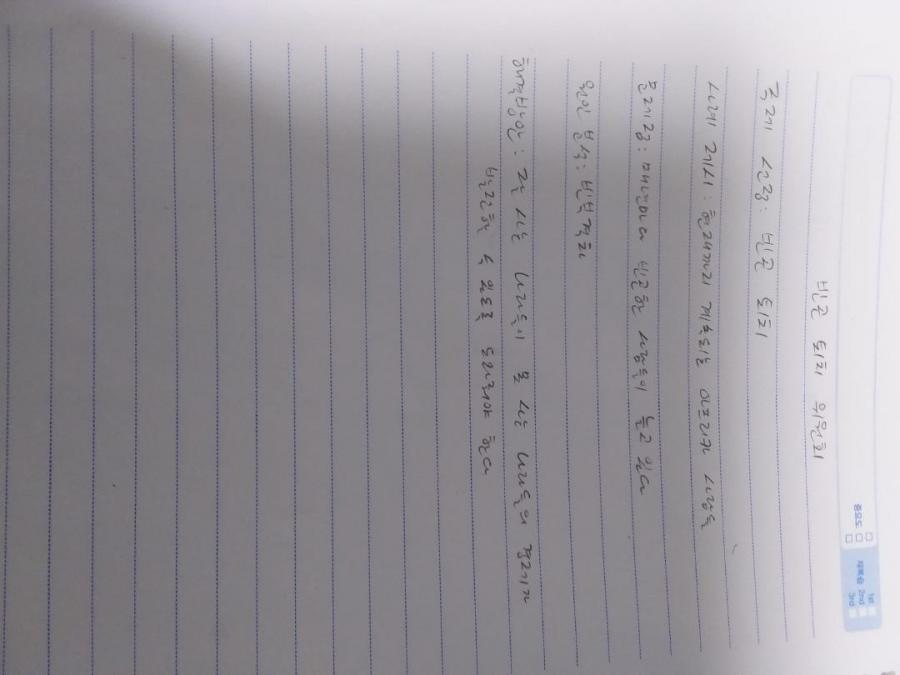 중요도
재복습 1st 2nd 3rd
빈곤 퇴치 위원회
주제 선정: 빈곤 퇴치
사례 제시: 현재까지 계속되는 아프리카 사람들
문제점: 매년마다 빈곤한 사람들이 늘고 있다
원인 분석: 빈부격차
해결방안: 잘 사는 나라들이 못 사는 나라들의 경제가
발전할 수 있도록 도와줘야 한다